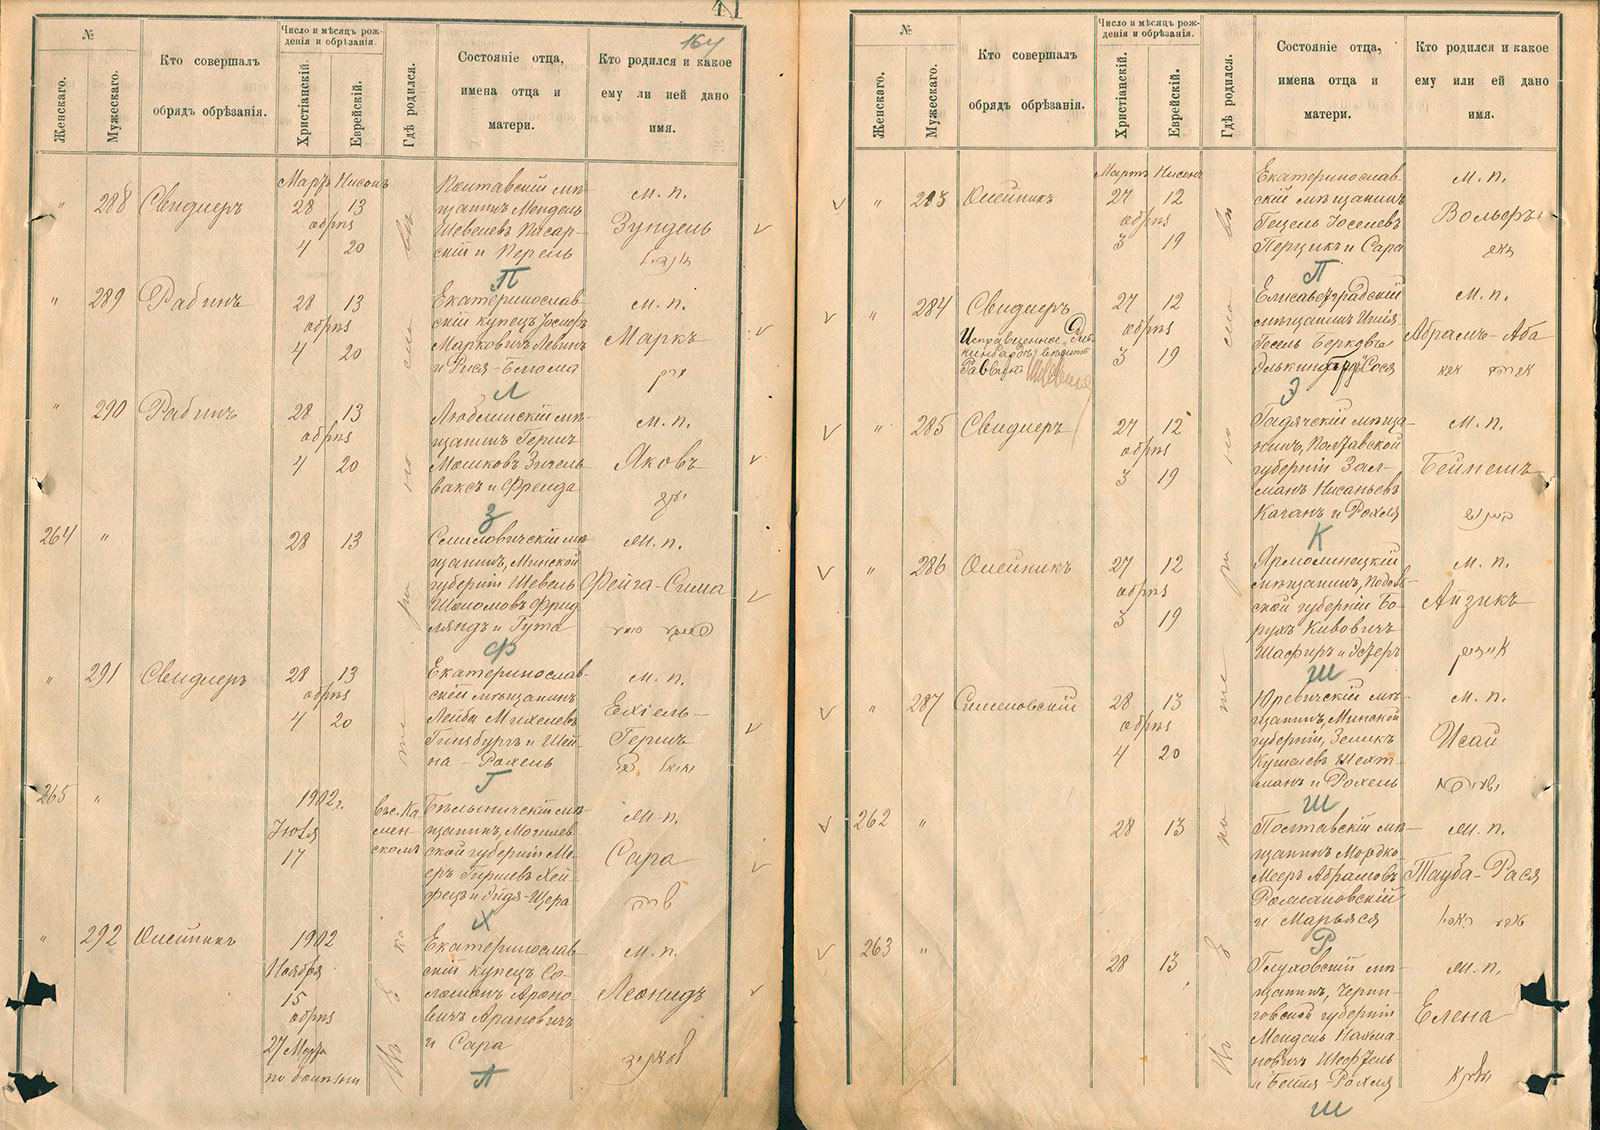 41
164
№
Женскаго.
Мужескаго.
Кто совершалъ
обрядъ обрѣзанія.
Число и мѣсяцъ рож-
денія и обрѣзанія.
Христіанскій.
Еврейскій.
Гдѣ родился.
Состояніе отца,
имена отца и
матери.
Кто родился и какое
ему ли ией дано
имя.
Мартъ Нисонъ
" 288 Свидлеръ
28 13
обрѣз
4 20
щанинъ Мендель
Шевелевъ Писар-
скій и Перель
м. п.
Зундель
П
" 289 Рабинъ
28 13
обрѣз
4 20
Екатеринослав-
скій купецъ Іосифъ
Марковичъ Левинъ
и Рися-Блюма
м. п.
Маркъ
Л
" 290 Рабинъ
28 13
обрѣз
4 20
Люблинскій мѣ-
щанинъ Гершъ
Мошковъ Зигель-
ваксъ и Фрейда
м. п.
Яковъ
З
264 "
28 13
Смиловичскій мѣ-
щанинъ, Минской
губерніи Шевель
Шоломовъ Фрид
ляндъ и Гута
м. п.
Фейга-Сима
Ф
" 291 Свидлеръ
28 13
обрѣз
4 20
Екатеринослав-
скій мѣщанинъ
Лейба Михелевъ
Гинзбургъ и Шей-
на-Рохель
м. п.
Ехіель-
Гершъ
Г
265 "
1902 г.
Іюля
17
въ с. Ка
мен-
скомъ
Бѣлыничскій мѣ-
щанинъ, Могилев
ской губерніи Ме-
еръ Гиршевъ Хей-
фецъ и Эйдя-Цера
м. п.
Сара
Х
" 292 Олейникъ
1902
Ноября
15
обрѣз
27 Марта
по болѣзни
Екатеринослав
скій купецъ Со-
ломонъ Ароно-
вичъ Арановичъ
и Сара
м. п.
Леонидъ
№
Женскаго.
Мужескаго.
Кто совершалъ
обрядъ обрѣзанія.
Число и мѣсяцъ рож-
денія и обрѣзанія.
Христіанскій.
Еврейскій.
Гдѣ родился.
Состояніе отца,
имена отца и
матери.
Кто родился и какое
ему или ей дано
имя.
Мартъ Нисонъ
" 283 Олейникъ
27 12
обрѣз
3 19
Екатеринослав-
скій мѣщанинъ
Гецель Іоселевъ
Перцикъ и Сара
м. п.
Вольфъ
П
" 284 Свидлеръ
27 12
обрѣз
3 19
Исправленное
Раввинъ
Елисаветградскій
мѣщанинъ
Гесель Берковъ
м. п.
Абрамъ-Аба
Э
" 285 Свидлеръ
27 12
обрѣз
3 19
Гадячскій мѣща-
нинъ, Полтавской
губерніи Зал-
манъ Нисаньевъ
Каганъ и Рохля
м. п.
Бейнешъ
К
" 286 Олейникъ
27 12
обрѣз
3 19
Ярмолинецкій
мѣщанинъ, Подоль-
ской губерніи Бо-
рухъ Кивовичъ
Шафиръ и Эстеръ
м. п.
Айзикъ
Ш
" 287 Симановскій
28 13
обрѣз
4 20
Юревичскій мѣ-
щанинъ, Минской
губерніи, Зеликъ
Кушелевъ Шехт-
манъ и Рохель
м. п.
Исай
Ш
262 "
28 13
Полтавскій мѣ-
щанинъ Мордко
Мееръ Абрамовъ
Романовскій
и Марьяся
м. п.
Тауба-Рася
Р
263 "
28 13
Глуховскій мѣ-
щанинъ, Черни-
говской губерніи
Мендель Нахма-
новичъ Шефтель
и Бейля-Рохля
м. п.
Елена
Ш